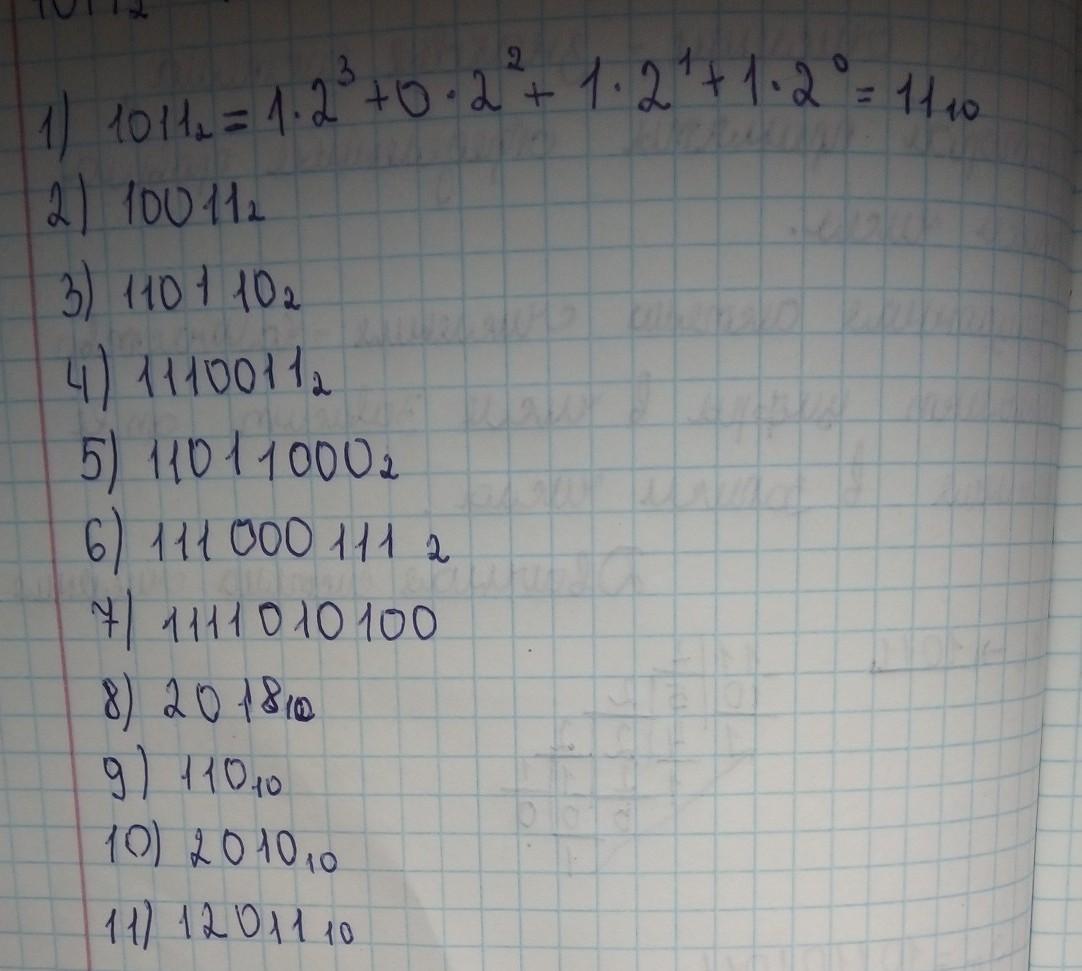 1) 1011₂ = 1·2³ + 0·2² + 1·2¹ + 1·2⁰ = 11₁₀
2) 10011₂
3) 110110₂
4) 1110011₂
5) 11011000₂
6) 111000111₂
7) 1111010100
8) 2018₁₀
9) 110₁₀
10) 2010₁₀
11) 12011₁₀